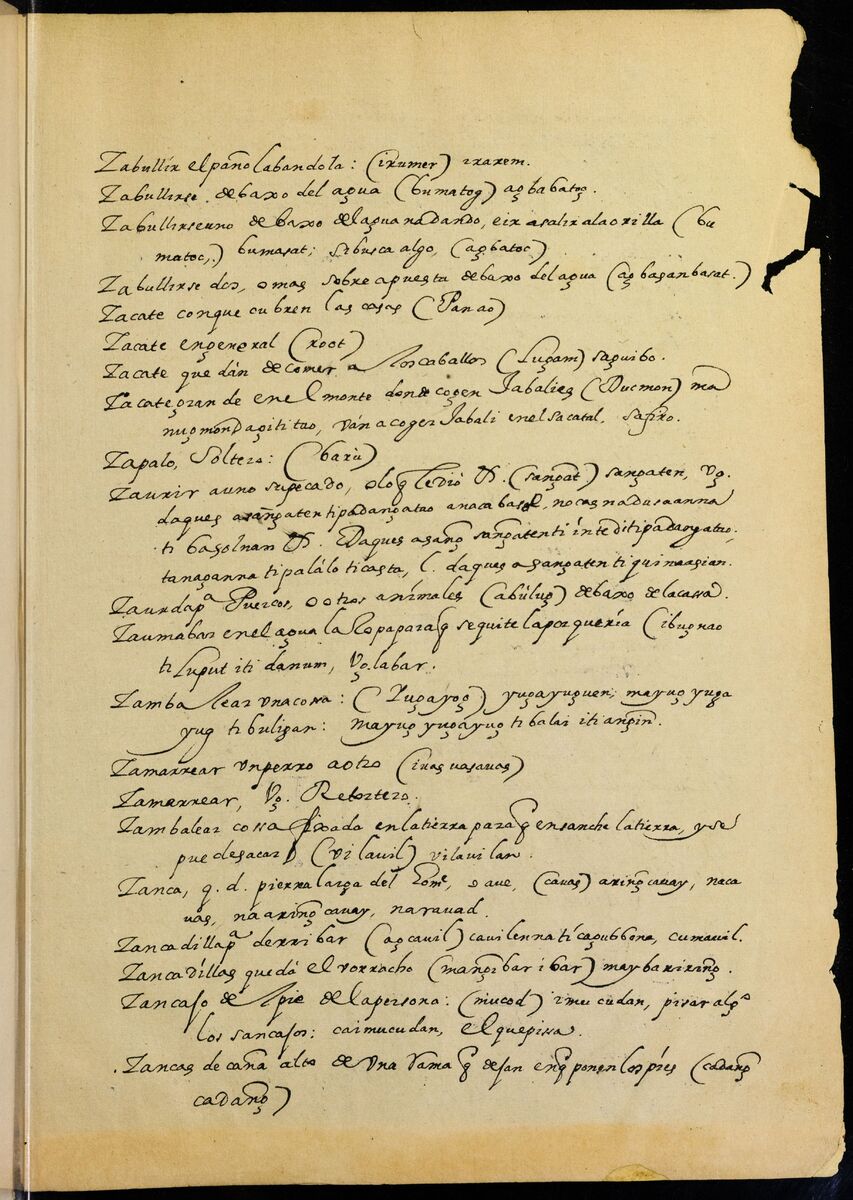 Zabullir el paño labandola: (irumer) irarem.
Zabullirse debaxo del agua (bumatog) agbabatog.
Zabullirse uno debaxo del agua nadando, e ir a salir a la orilla (bu
matoc,) bumasat; si busca algo, (agbatoc)
Zabullirse dos, o mas sobre apuesta debaxo del agua (agbasanbasat.)
Zacate conque cubren las casas (Panao)
Zacate en general (root)
Zacate que dán de comer a los caballos (Lugam) saguibo.
Zacate grande en el monte donde cogen Jabalies (Ducmon) ma
nugmondagititao, ván a coger Jabali en el sacatal. safiro.
Zapalo, Soltero: (baru)
Zaurir a uno su pecado, o lo q̃ le dió (sangat) sangaten, Vg.
daques asangaten ti padangatao anacabasol, no
ti basolnam Daques asang sangaten ti
tanaganna ti palálo ti casta, l. daques asangaten ti quinaasian.
Zaurda pª Puercos, o otros animales (abúlug) debaxo de la cassa.
Zaumabar en el agua la Ropa para q̃ se quite la porquería (ibugnao
ti Luput iti danum, Vg. labar.
Zambalear una cossa: (Yugayog) yugayuguen; mayug yuga
yug ti buligan: mayug yugayug ti balai iti angin.
Zamarrear un perro a otro (iuas uasauas)
Zamarrear, Vg. Retortero.
Zambalear cossa fixada en la tierra para q̃ ensanche la tierra, y se
puede sacar (vilavil) vilavilan.
Zanca, q. d. pierna larga del home, o ave, (cauas) aring cauay, naca
uas, naaring cauay, narauad.
Zancadilla pª derribar (agcauil) cauilenna ti cagubbona, cumauil.
Zancadíllas que dá el vorracho (mangibar ibar) maybariring.
Zancajo del pie de la persona: (mucod) imucudan, pisar algº
los sancajos: caimucudan, el que pissa.
Zancas de caña alto de una rama q̃ dejan en q̃ ponen los píes (cadang
cadang)